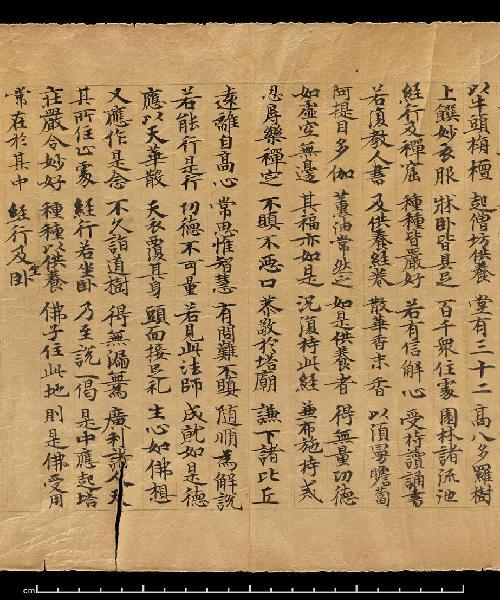 以牛頭栴檀 起僧坊供養 堂有三十二 高八多羅樹
上饌妙衣服 牀卧皆具足 百千衆住處 園林諸流池
經行及禪窟 種種皆嚴好 若有信解心 受持讀誦書
若須教人書 及供養經卷 散華香末香 以須曼瞻蔔
阿提目多伽 薰油常然之 如是供養者 得無量功德
如虛空無邊 其福亦如是 況復持此經 兼布施持戒
忍辱樂禪定 不瞋不惡口 恭敬於塔廟 謙下諸比丘
遠離自高心 常思惟智慧 有問難不瞋 隨順為解說
若能行是行 功德不可量 若見此法師 成就如是德
應以天華散 天衣覆其身 頭面接足礼 生心如佛想
又應作是念 不久詣道樹 得無漏無為 廣利諸人天
其所住止處 經行若坐卧 乃至說一偈 是中應起塔
莊嚴令妙好 種種以供養 佛子住此地 則是佛受用
常在於其中 經行及坐卧
cm